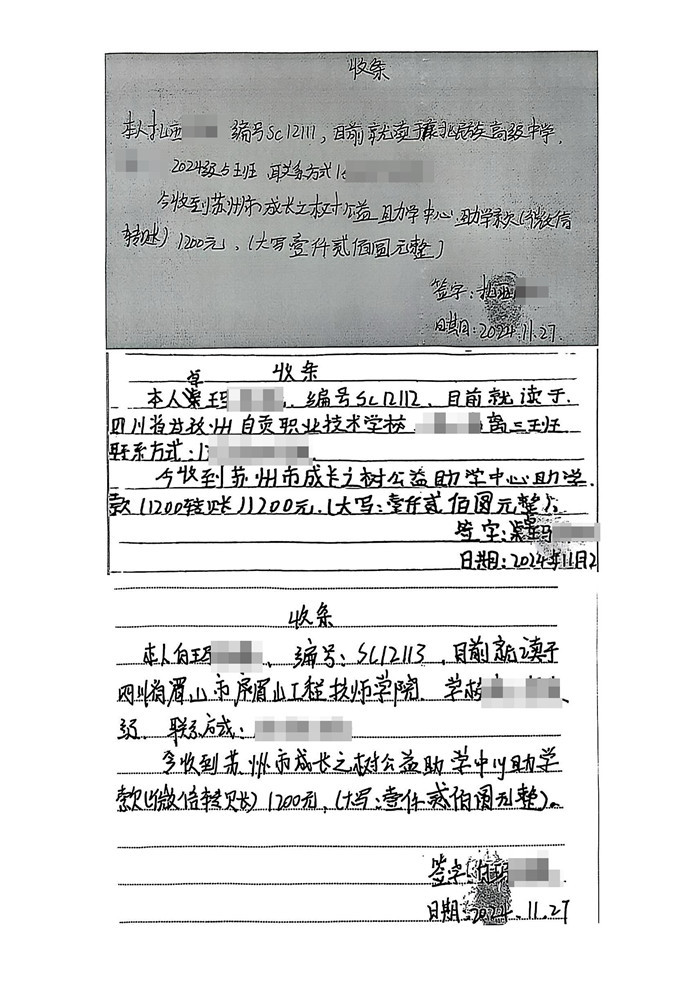 收条
本人扎西 编号SC12111,目前就读于 民族高级中学,
2024级5班 联系方式1
今收到苏州市成长之树公益助学中心助学款(微信
转账)1200元,(大写壹仟贰佰圆元整)
签字:扎西
日期:2024.11.27.
收条
卓
本人 玛 、编号SC12112、目前就读于
四川省 州自贡职业技术学校 高三 班
联系方式:1
今收到苏州市成长之树公益助学中心助学
款(1200转账)1200元.(大写:壹仟贰佰圆元整).
签字: 玛
日期:2024年11月2
收条
本人白玛 、编号:SC12113,目前就读于
四川省眉山市 眉山工程技师学院 学校
级. 联系方式:
今收到苏州市成长之树公益助学中心助学
款(微信转账)1200元,(大写:壹仟贰佰圆元整)。
签字:白玛
日期:2024.11.27